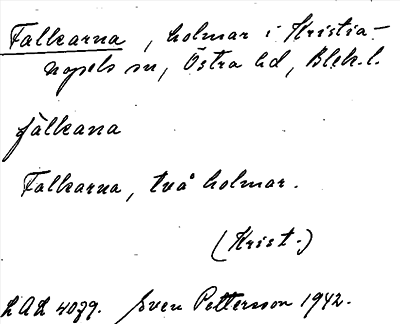 Falkarna, holmar i Kristia-
nopels sn, Östra hd, Blek. l.
fálkana
Falkarna, två holmar.
(Krist.)
LAL 4079. Sven Pettersson 1942.